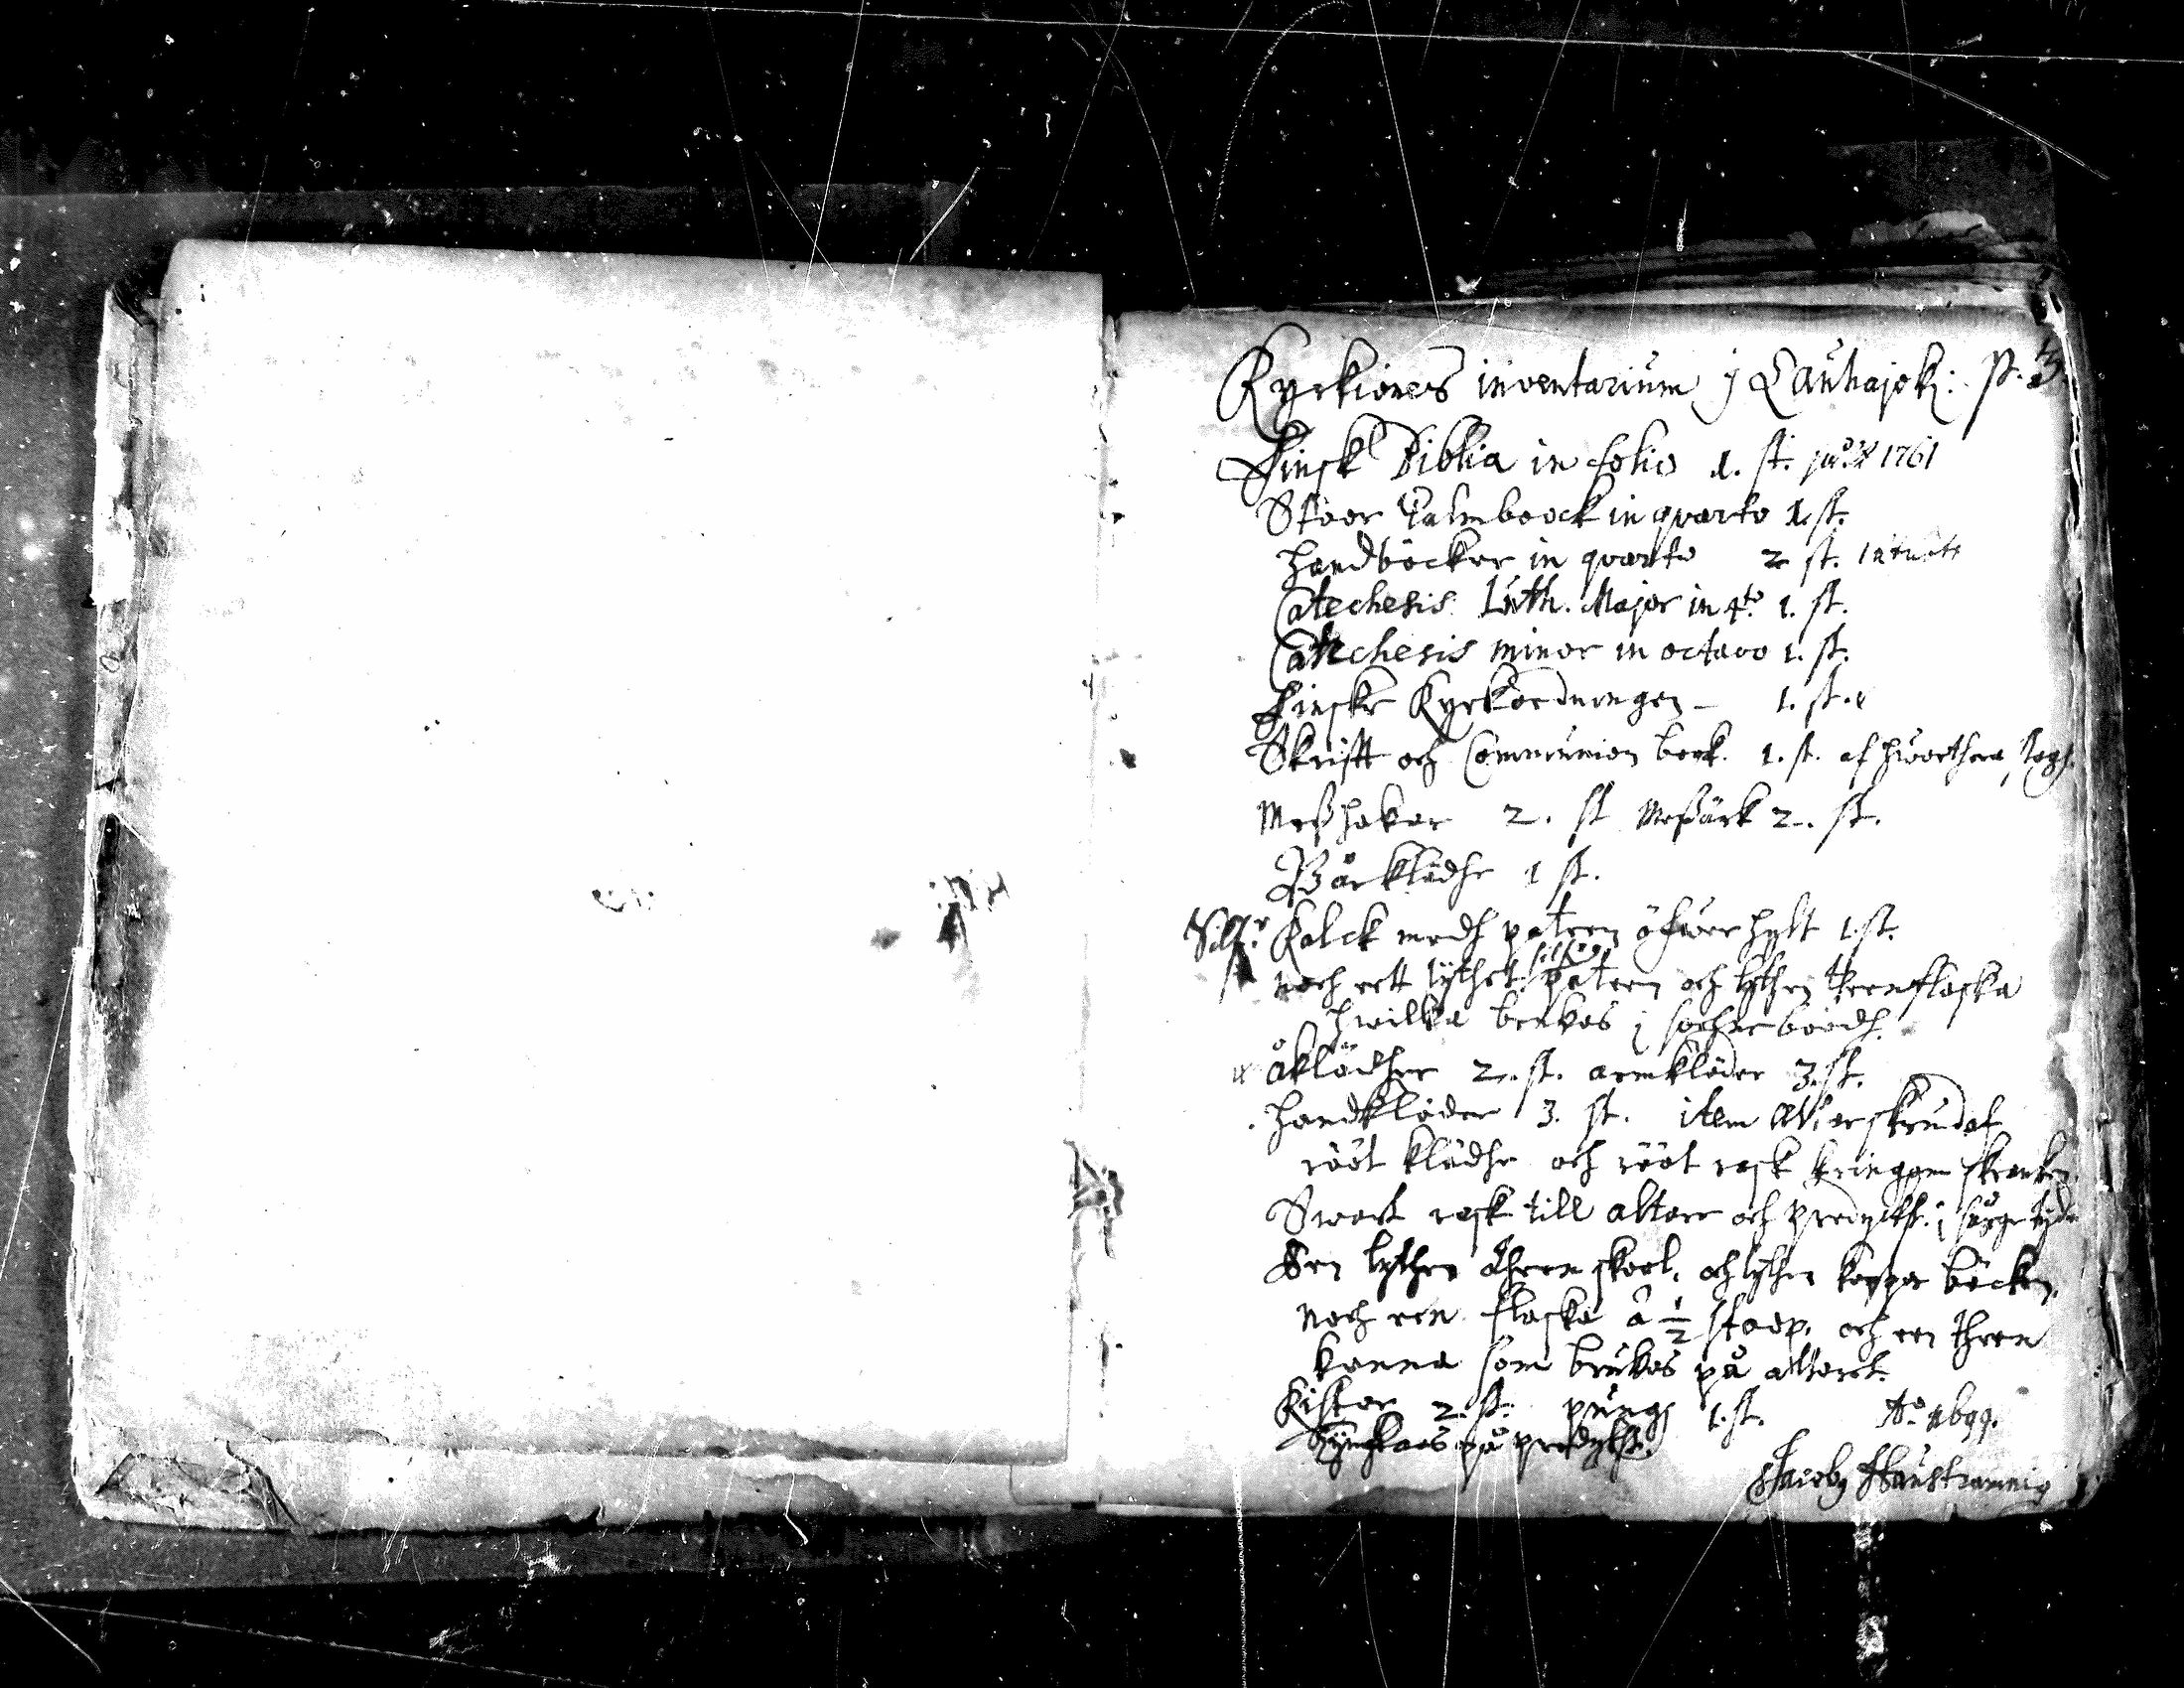 Kyrkiones inventarium j Lauhajoki: p. 3.
Finsk Biblia in folio 1. st. 1761
Stoor Psalmboock in qvarto 1. st.
handböcker in qvarto 2 st.
Catechesis Luth. Major in 4to. 1. st.
Catechesis minor in octavo 1. st.
Finske Kyrkoordningen 1. st.
Skrifft och Communion book. 1. st. af hwarthera slags.
Messhakar 2. st Messärk 2. st.
Båårklädhe 1 st.
Silf:r Kalck medh pateen öfwerhylt 1. st.
noch ett lythet silf:r pateen och lythen theenflaska
hwilka brukas i sochnebodh.
åklädher 2. st. armkläder 3. st.
handkläder 3. st. item altarskrud af
rööt klädhe och rööt rask kringom skranken
Swart rask till altare och predykst. i sårgetyde
Een lythen theen skool, och lythen koppar bäcken,
noch een flaska à 1/2 stoop. och een theen
kanna som brukas på altaret.
Kistor 2. st. pung 1. st. Ao. 1699.
Tymglaas på predykst.
Jacoby